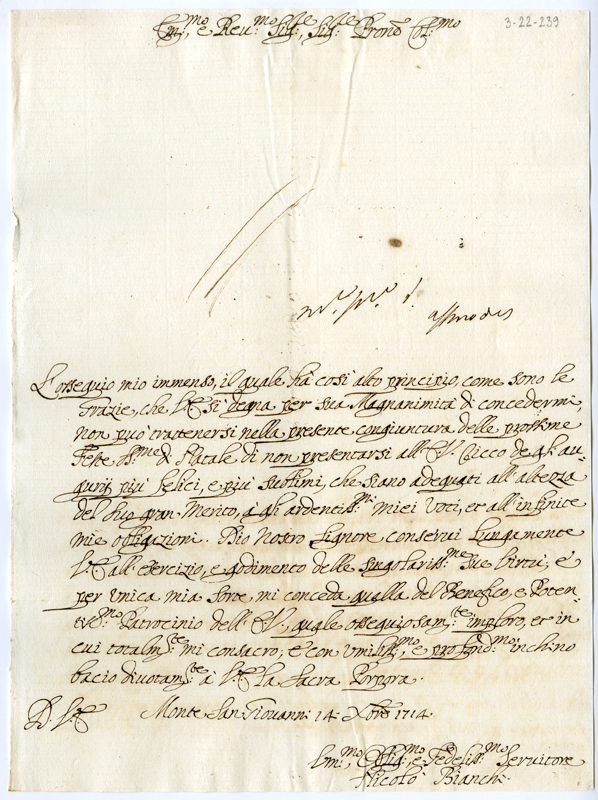 3-22-239
Em.mo, e Reu.mo Sig.re, Sig.re Prone Col.mo
L'ossequio mio immenso, il quale hà cosi alto principio, come sono le
Grazie, che V.E. si degna per sua Magnanimità di concedermi,
non può trattenersi nella presente congiuntura delle prossime
Feste SS.me di Natale di non presentarsi all'E.V. ricco de gl'au-
gurij più felici, e più sublimi, che siano adeguati all'altezza
del Suo gran Merito, a gli ardentiss.mi miei Voti, et all'infinite
mie obligazioni. Dio Nostro Signore conserui lungamente
V.E. all'esercizio, e godimento delle singolariss.me Sue Virtù; e
per Vnica mia Sorte, mi conceda quella del Benefico, e Poten-
tiss.mo Patrocinio dell'E.V., quale ossequiosam.te imploro, et in
cui totalm.te mi consacro; e con Vmiliss.mo, e profond.mo inchino
bacio diuotam.te à V.E. la Sacra Porpora.
D. V.E. Monte San Giouanni 14. Xbre 1714.
Vm.mo, Obblig.mo, e Fedeliss.mo Seruitore
Nicolò Bianchi.